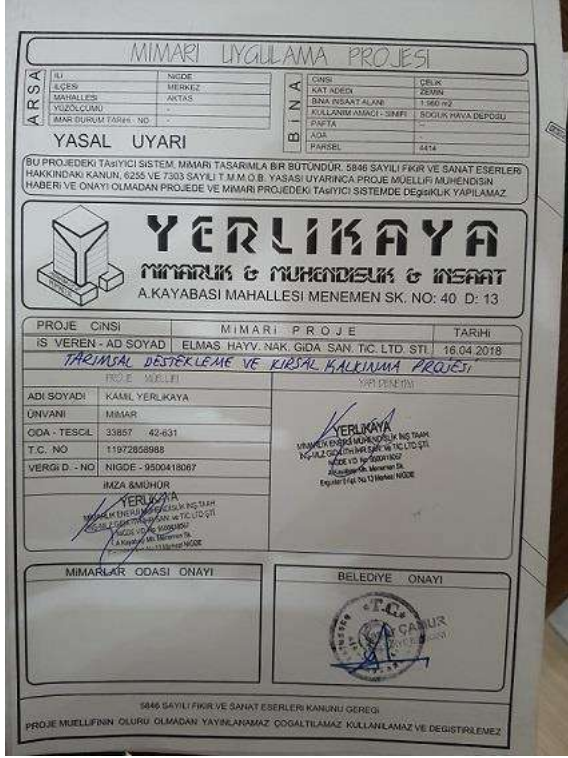 MİMARİ UYGULAMA PROJESİ
ARSA
İLİ NİGDE
İLÇESİ MERKEZ
MAHALLESİ AKTAS
YÜZÖLÇÜMÜ -
İMAR DURUM TARİHİ - NO -
BİNA
CİNSİ ÇELİK
KAT ADEDİ ZEMİN
BİNA İNŞAAT ALANI 1.960 m2
KULLANIM AMACI - SINIFI SOGUK HAVA DEPOSU
PAFTA -
ADA
PARSEL 4414
YASAL UYARI
BU PROJEDEKİ TAsIYICI SİSTEM, MİMARİ TASARIMLA BİR BÜTÜNDÜR. 5846 SAYILI FiKiR VE SANAT ESERLERi
HAKKINDAKi KANUN, 6255 VE 7303 SAYILI T.M.M.O.B. YASASI UYARINCA PROJE MÜELLiFi MÜHENDiSiN
HABERi VE ONAYI OLMADAN PROJEDE VE MiMARi PROJEDEKi TAsIYICI SiSTEMDE DEgisiKLiK YAPILAMAZ
YERLIKAYA
MIMARLIK & MUHENDISLIK & INSAAT
A.KAYABASI MAHALLESI MENEMEN SK. NO: 40 D: 13
PROJE CiNSi MiMARi PROJE TARiHi
iS VEREN - AD SOYAD ELMAS HAYV. NAK. GiDA SAN. TiC. LTD. STI. 16.04.2018
TARIMSAL DESTEKLEME VE KIRSAL KALKINMA PROJESİ
PROJE MÜELLİFİ YAPI DENETİM
ADI SOYADI KAMiL YERLiKAYA
ÜNVANI MiMAR
ODA - TESCiL 33857 42-631
T.C. NO 11972858988
VERGi D. - NO NIGDE - 9500418067
iMZA &MÜHÜR
YERLİKAYA
MİMARLIK ENERJİ MÜHENDİSLİK İNŞ.TAAH.
NİĞDE V.D. No: 9500418067
A.Kayabaşı Mh. Menemen Sk.
YERLİKAYA
MİMARLIK ENERJİ MÜHENDİSLİK İNŞ.TAAH.
NİĞDE V.D. No: 9500418067
A.Kayabaşı Mh. Menemen Sk.
No:13 Merkez/ NİĞDE
MiMARLAR ODASI ONAYI BELEDiYE ONAYI
T.C.
ÇAMUR
5846 SAYILI FiKiR VE SANAT ESERLERi KANUNU GEREGi
PROJE MUELLiFiNiN OLURU OLMADAN YAYINLANAMAZ COGALTILAMAZ KULLANILAMAZ VE DEGiSTiRiLEMEZ